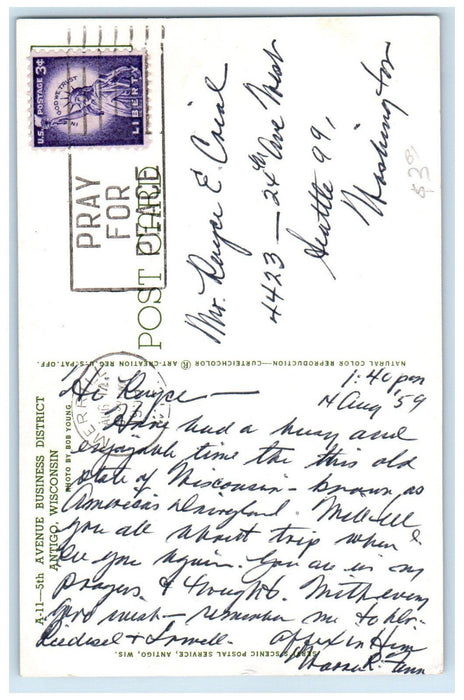 U.S. POSTAGE 3¢
IN GOD WE TRUST
LIBERTY
PRAY
FOR
PEACE
POST CARD
Mr. Royce E.
4423 — 24th Ave West
Seattle 99,
Washington
$3.99
NATURAL COLOR REPRODUCTION—CURTEICHCOLOR ® ART-CREATION REG. U.S. PAT. OFF.
A-11—5th AVENUE BUSINESS DISTRICT
ANTIGO, WISCONSIN
PHOTO BY BOB YOUNG
MERRILL
1:40 pm
4 Aug '59
Hi Royce—
Have had a busy and
enjoyable time the this old
state of Wisconsin - known as
America's Dairyland. Will tell
you all about trip when I
see you again. You are in my
prayers & thoughts. With every
good wish — remember me to
& Lowell. in Him
SCENIC POSTAL SERVICE, ANTIGO, WIS.